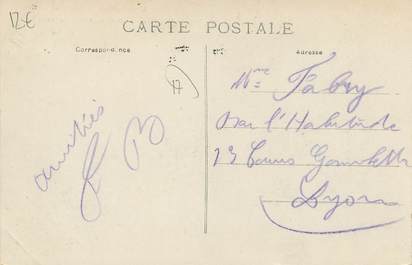 12€
CARTE POSTALE
Correspondance
Adresse
17
amitiés
B
Mme Fabry
Bar l'Habitude
13 Cours Gambetta
Lyon